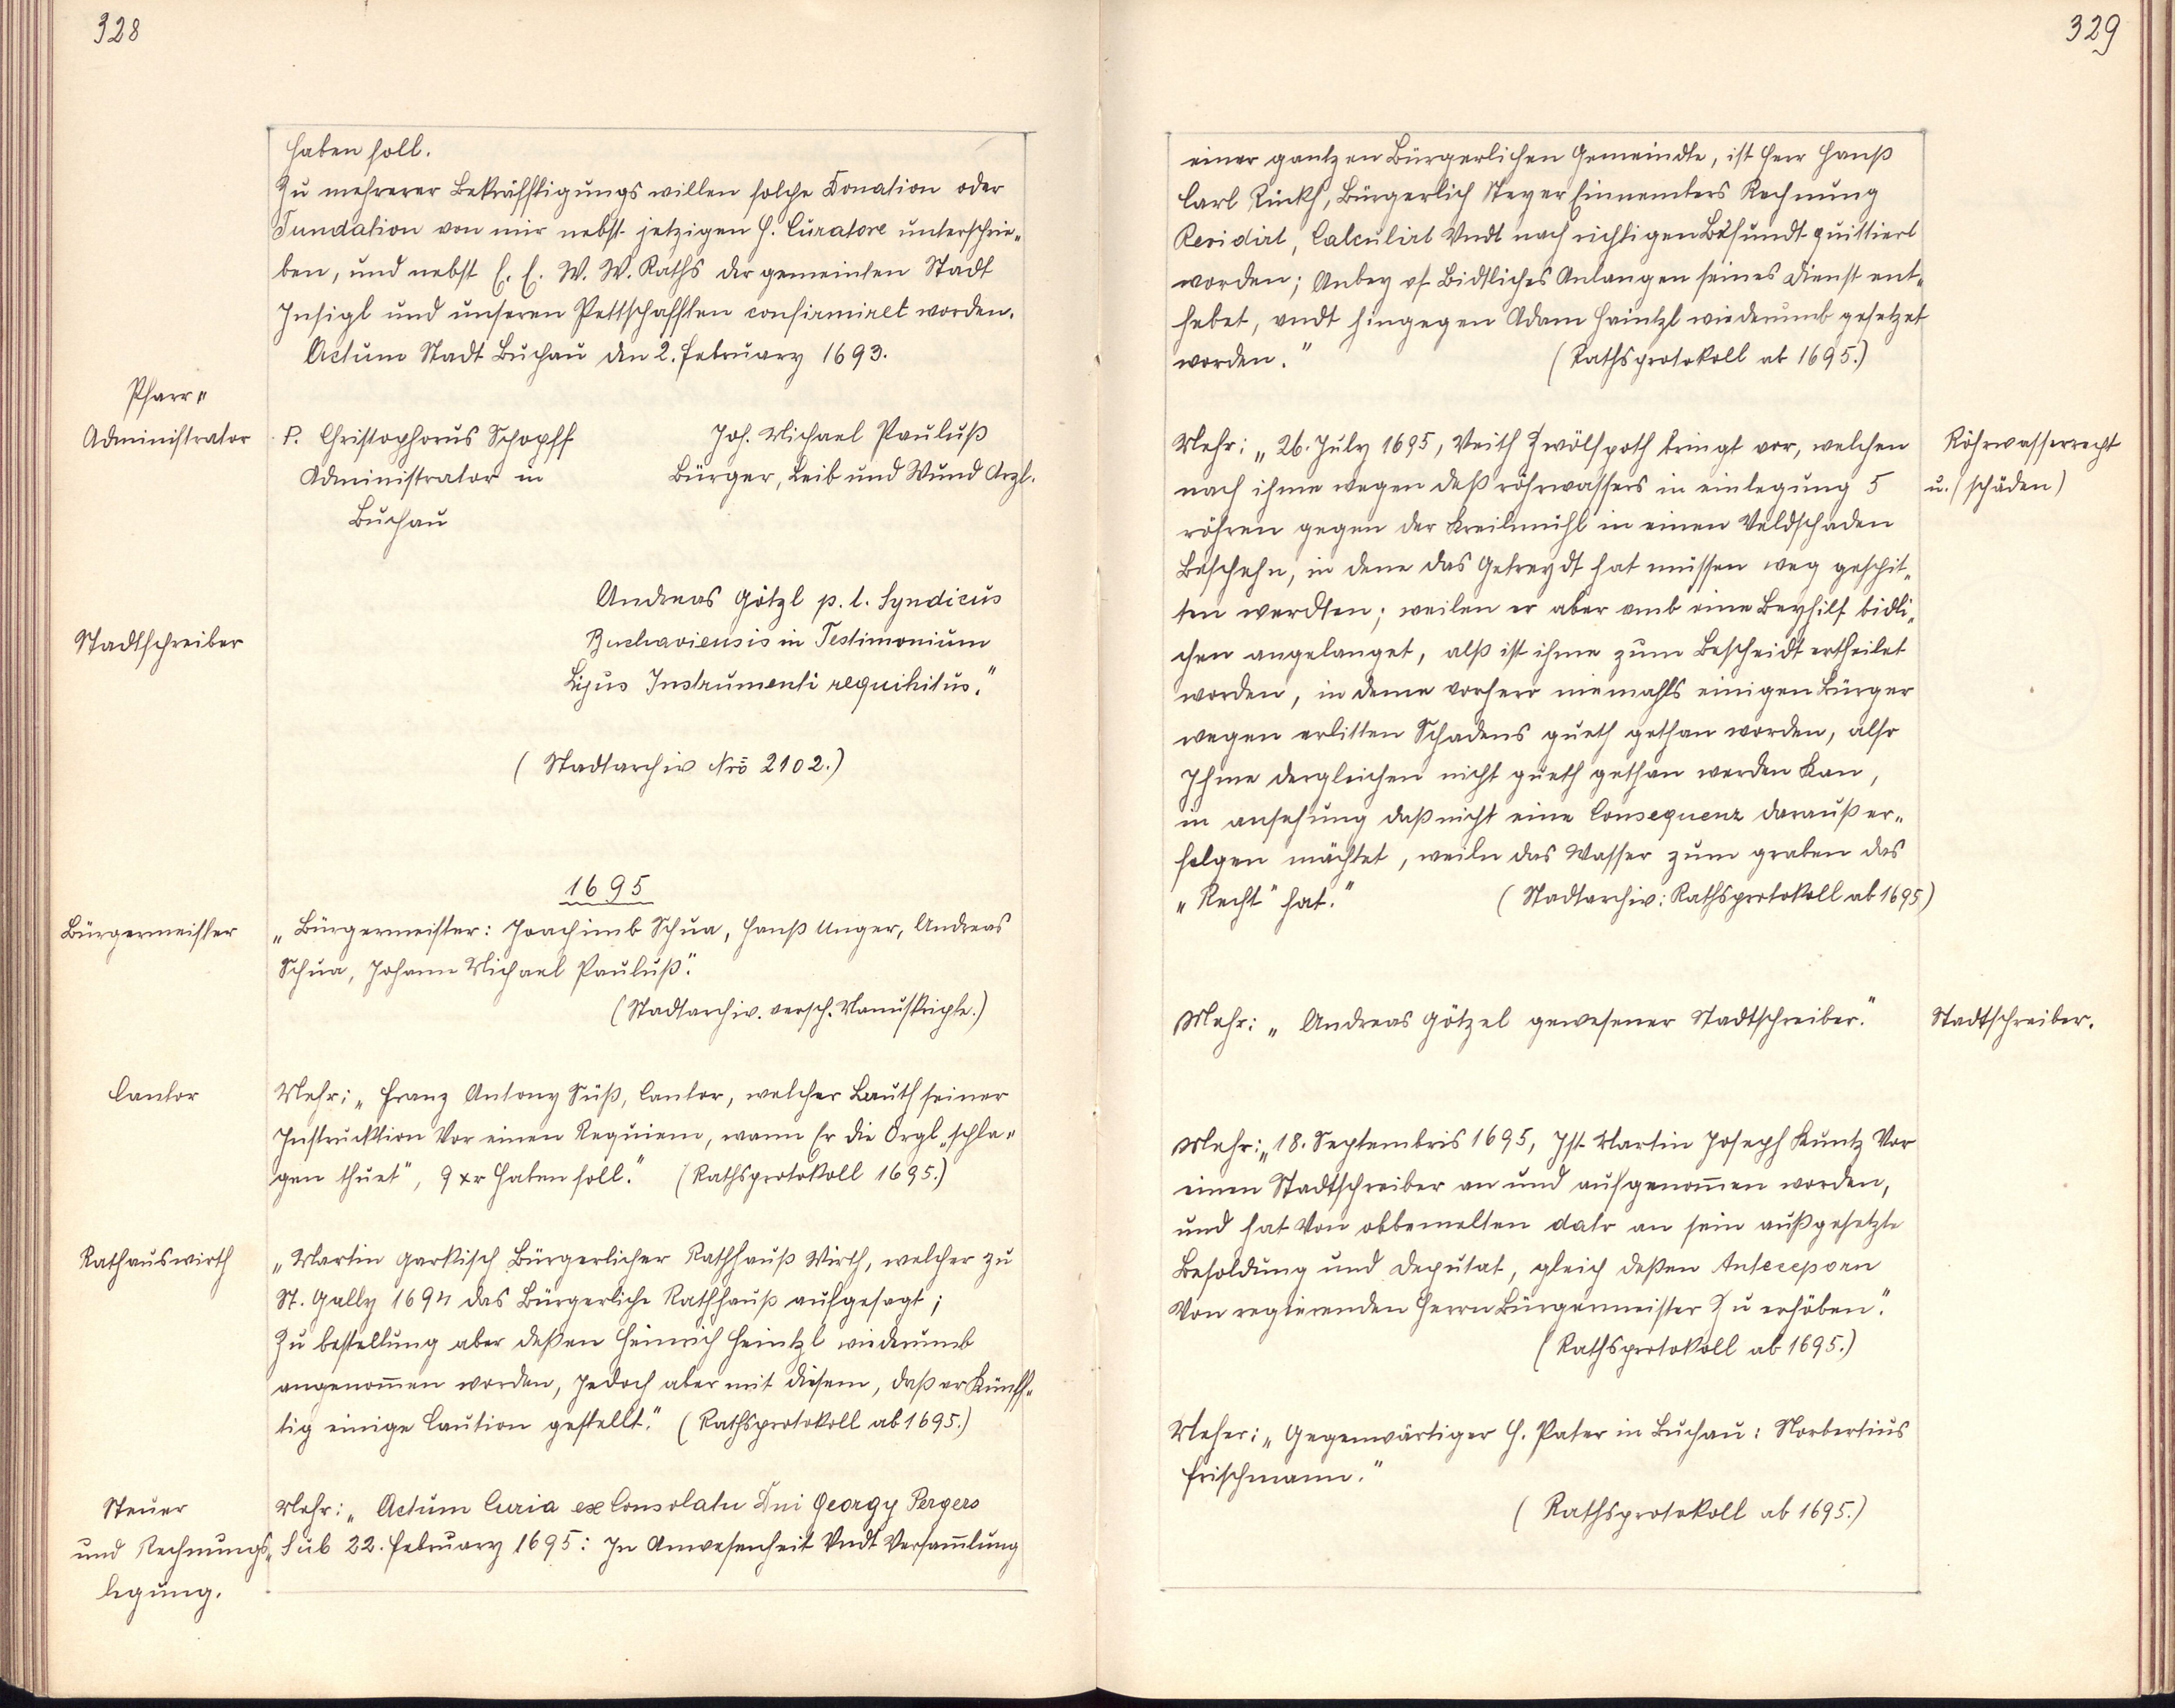 328
haben soll.
Zu mehrerer Bekräfftigungs willen solche Donation oder
Fundation von mir nebst jetzigen H. Curatore unterschrie„
ben, und nebst E. E. W. W. Raths der gemeinten Stadt
Insigl und unseren Pettschafften confirmiret worden.
Actum Stadt Buchau den 2. February 1693.
Pfarr„
Administrator
P. Christophorus Schopff
Administrator in
Buchau
Joh. Michael Pauluß
Bürger, Leib und Wund Arzt.
Stadtschreiber
Andreas Götzl p. t. Syndicus
Buchaviensis in Testimonium
Instrumenti requisitus."
(Stadtarchiv Nrō 2102.)
1695
Bürgermeister
„Bürgermeister: Joachimb Schua, Hanß Unger, Andreas
Schua, Johann Michael Pauluß."
(Stadtarchiv. versch. Manuskripte.)
Cantor
Mehr: „Franz Antony Süß, Cantor, welcher Lauth seiner
Instrucktion Vor einen Requiem, wann Er die Orgl „schla„
gen thuet", 9 xr haben soll." (Rathsprotokoll 1695.)
Rathauswirth
„Martin Garkisch Bürgerlicher Rathhauß Wirth, welcher zu
St. Gally 1694 das Bürgerliche Rathhauß aufgesagt;
Zu bestellung aber deßen Heinrich Heintzl wiederumb
angenom̄en worden, Jedoch aber mit diesem, daß er Künff„
tig einige Caution gestellt." (Rathsprotokoll ab 1695.)
Steuer
und Rechnungs„
legung.
Mehr: „Actum Curia ex Consolatu Dni Georgy Pergers
Sub 22. February 1695: In Anwesenheit Vndt Versam̄lung
329
einer gantzen Bürgerlichen Gemeindte, ist Herr Hanß
Carl Rinkh, Bürgerlich Steyer Einnembers Rechnung
Revidirt, Calculirt Vndt nach richtigen Befundt quittiert
worden; Anbey vf Bidtliches Anlangen seines Dienst ent„
hebet, vndt hingegen Adam Haintzl wiederumb gesetzet
worden." (Rathsprotokoll ab 1695.)
Röhrwasserrecht
u. (schäden)
Mehr: „26. July 1695, Veith Zwölfpoth bringt vor, welchen
nach ihme wegen deß röhrwassers in einlegung 5
röhren gegen der Kreilmühl in einen Veldschaden
Beschehn, in dene das Getreydt hat müssen weg geschit„
ten werdten; weilen er aber vmb eine Beyhilf bidli„
chen angelanget, alß ist ihme zum Bescheidt ertheilet
worden, in deme vorhero niemahls einigen Bürger
wegen erlitten Schadens gueth gethan worden, also
Ihme dergleichen nicht gueth gethan werden Kan,
in ansehung daß nicht eine Consequenz darauß er„
folgen möchtet, weiln das Wasser zum graben das
„Recht" hat." (Stadtarchiv: Rathsprotokoll ab 1695)
Mehr: „Andreas Götzel gewesener Stadtschreiber."
Stadtschreiber.
Mehr: „18. Septembris 1695, Ist Martin Joseph Kuntz Vor
einen Stadtschreiber an und aufgenom̄en worden,
und hat Von obbemelten dato an sein außgesetzte
Besoldung und Deputat, gleich deßen
Von regierenden Herrn Bürgermeister Zu erhöben."
(Rathsprotokoll ab 1695.)
Meher: „Gegenwärtiger H. Pater in Buchau: Norbertius
Frischmann."
(Rathsprotokoll ab 1695.)